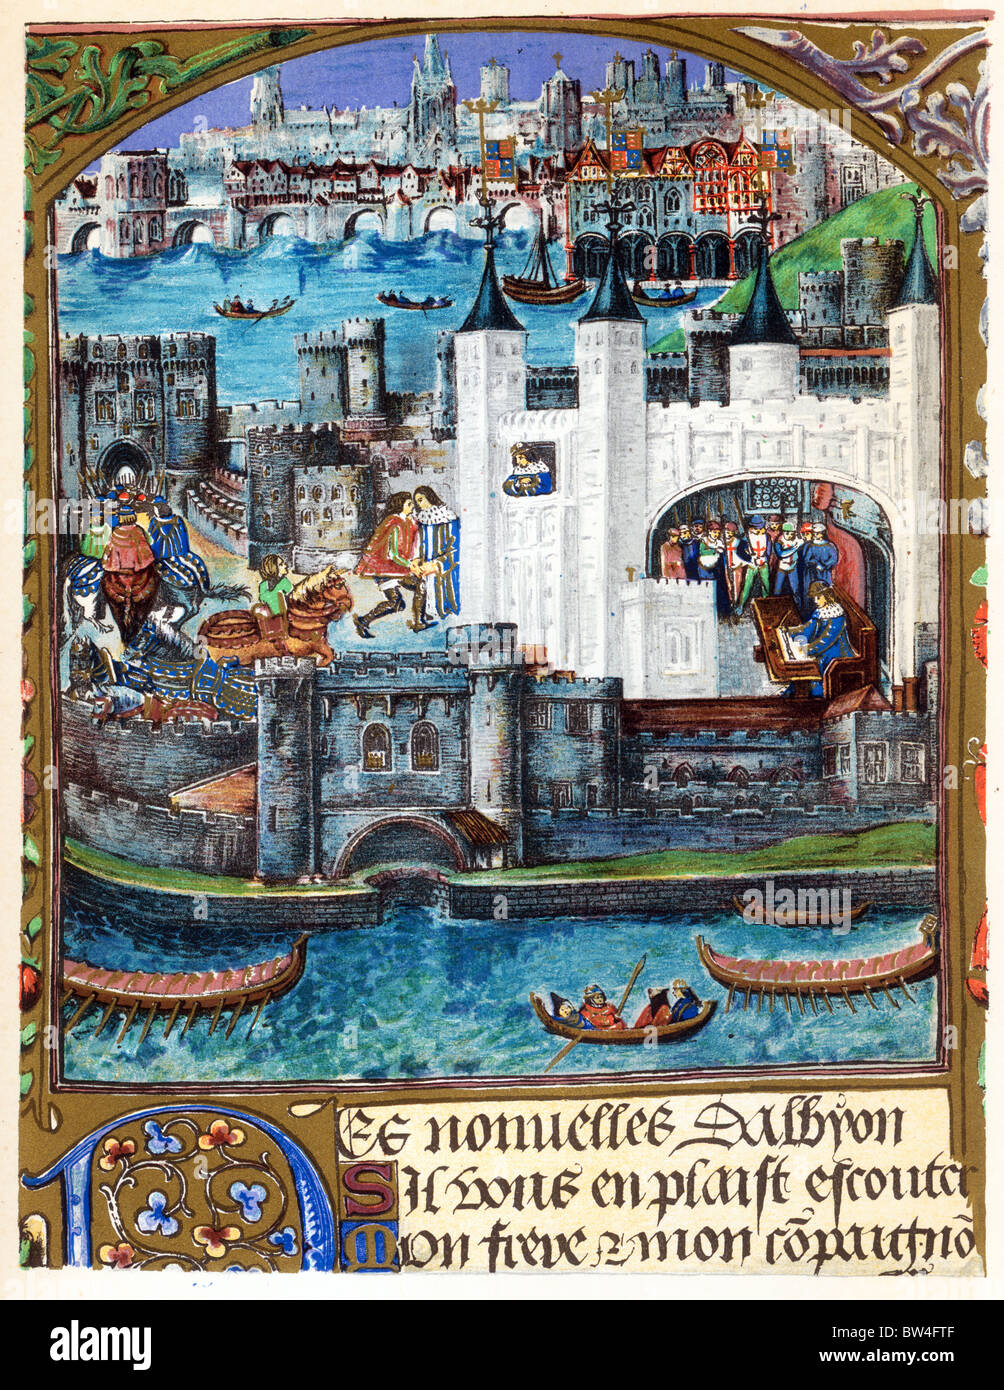 Des nouuelles Dalbyon
Sil vous en plaist escouter
Mon frere & mon cõpaignõ
alamy
Image ID: BW4FTF
www.alamy.com